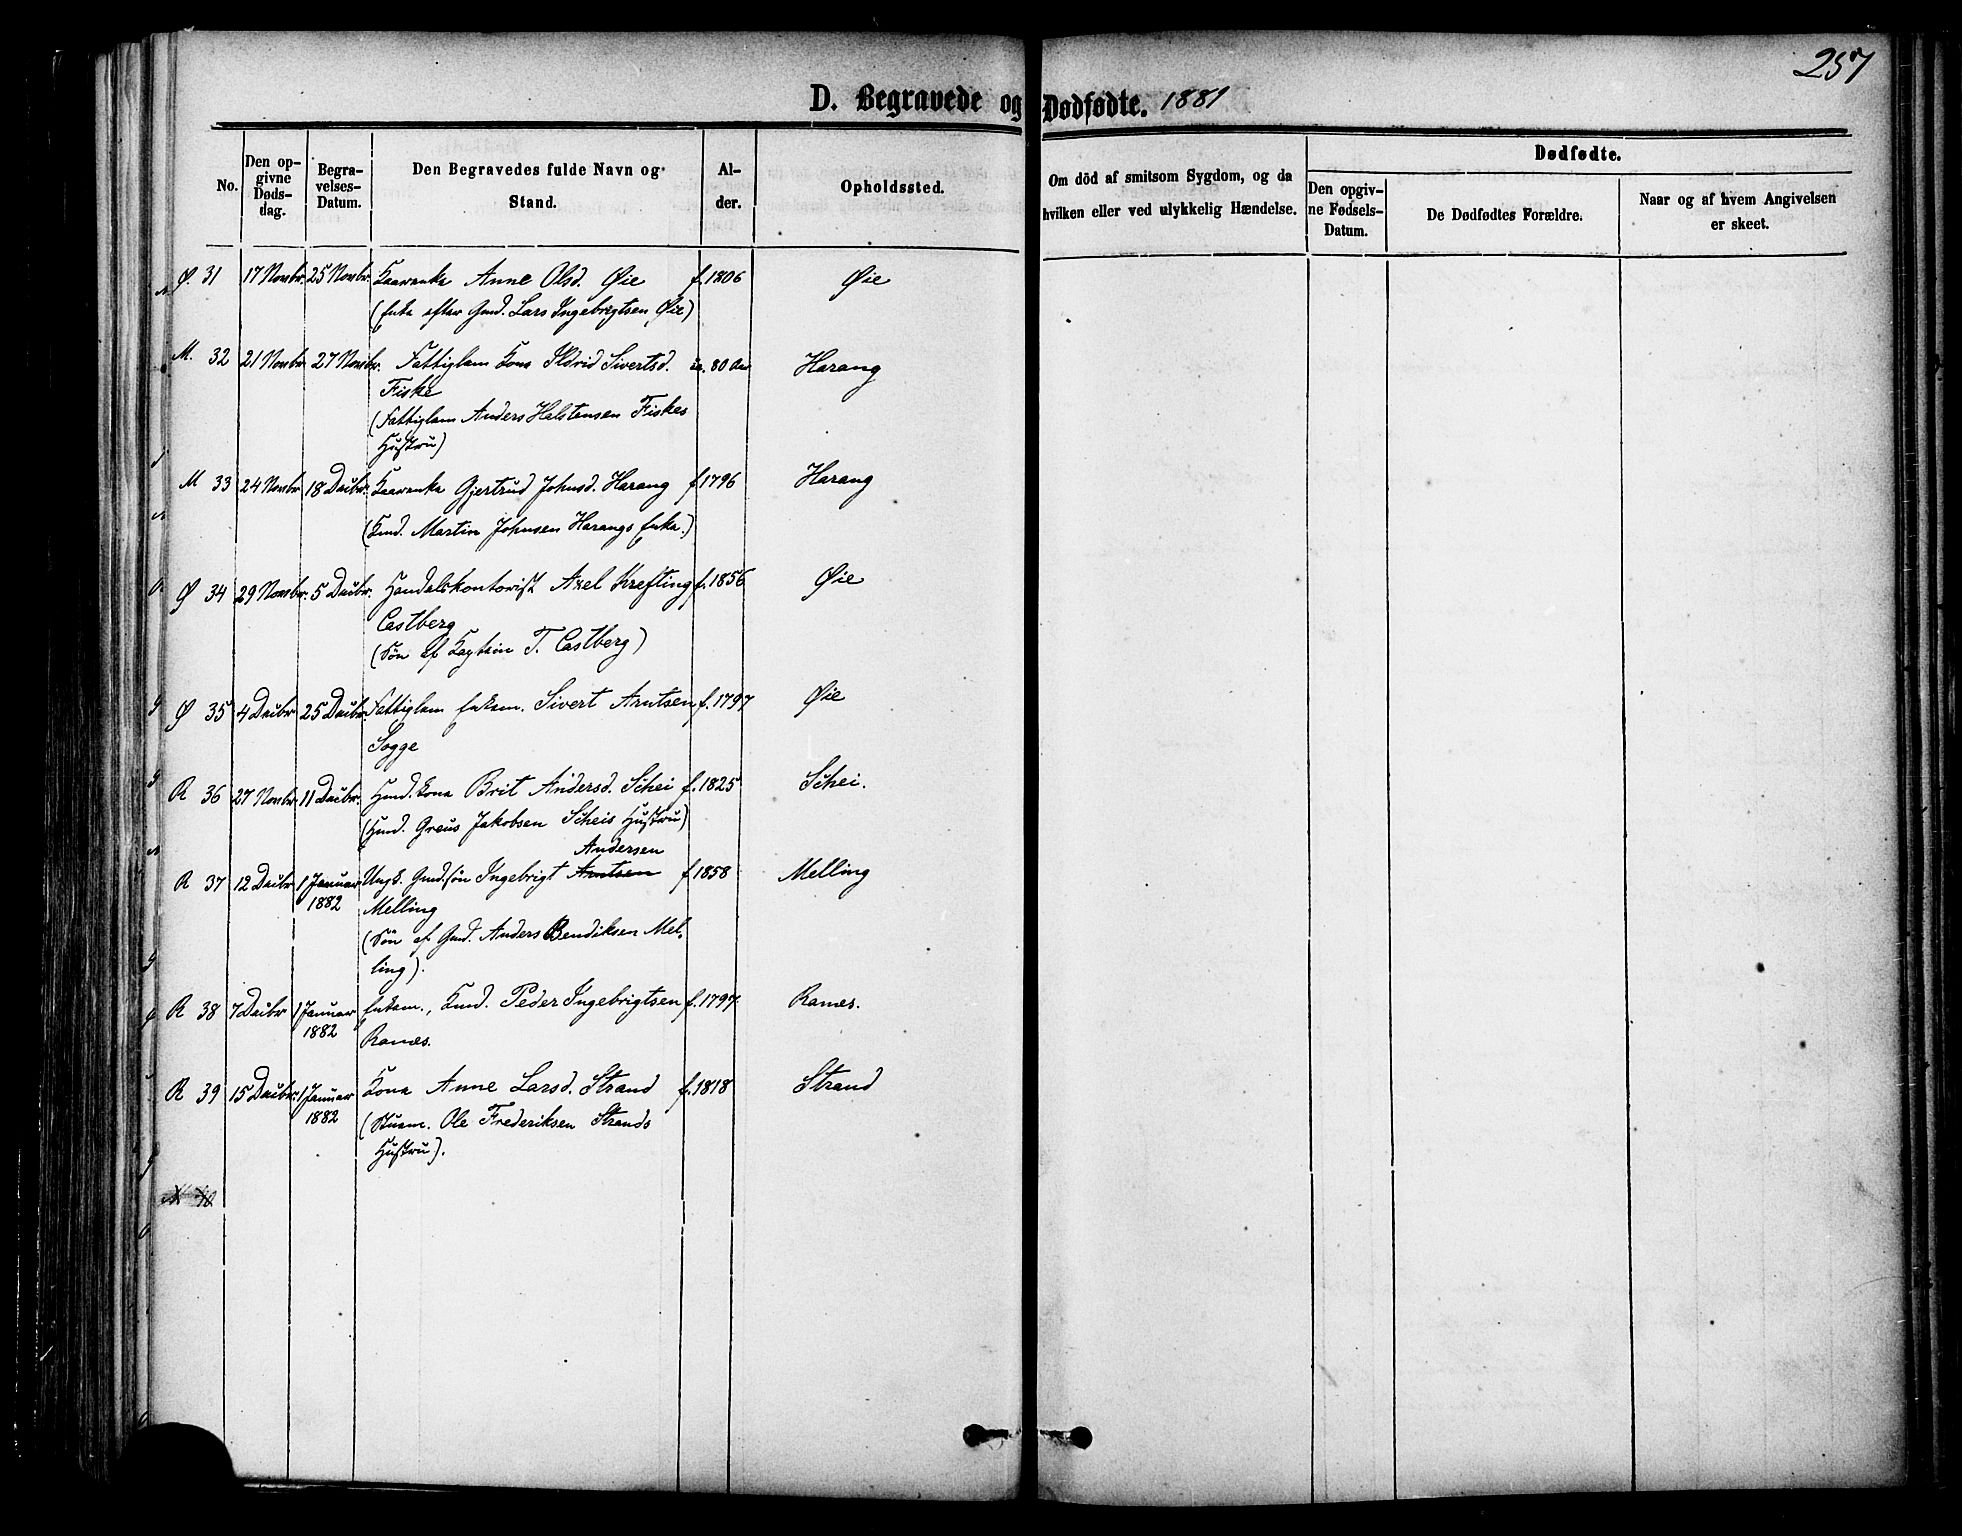 257
D. Begravede og Dødfødte. 1881
No.
Den op-
givne
Døds-
dag.
Begra-
velses-
Datum.
Den Begravedes fulde Navn og
Stand.
Al-
der.
Opholdssted.
Om död af smitsom Sygdom, og da
hvilken eller ved ulykkelig Hændelse.
Dødfødte.
Den opgiv-
ne Fødsels-
Datum.
De Dødfødtes Forældre.
Naar og af hvem Angivelsen
er skeet.
Ø. 31 17 Novbr. 25 Novbr. Kaarenke Anne Olsd. Øie f. 1806 Øie
(Enke efter Gmd. Lars Ingebrigtsen Øie)
M. 32 21 Novbr 27 Novbr. Fattiglem Kone Ildrid Sivertsd. 80 Aar Harang
Fiske
(Fattiglem Anders Halstensen Fiskes
Hustru)
M 33 24 Novbr 18 Decbr. Kaarenke Gjertrud Johnsd. Harang f. 1796 Harang
(Kmd. Martin Johnsen Harangs Enke.)
Ø 34 29 Novbr. 5 Decbr. Handelskontorist Axel Krefting f. 1856 Øie
Castberg
(Søn af Kaptein T. Castberg)
Ø 35 4 Decbr 25 Decbr. Fattiglem Enkem. Sivert Arntsen f. 1797 Øie
Sogge
R 36 27 Novbr. 11 Decbr. Hmd. Kone Brit Andersd. Schei f. 1825 Schei.
(Hmd. Greus Jakobsen Scheis Hustru)
Andersen
R 37 12 Decbr 1 Januar Ungk. Gmd.søn Ingebrigt Arntsen f 1858 Melling
1882 Melling
(Søn af Gmd. Anders Bendiksen Mel-
ling).
R 38 7 Decbr 1 Januar Enkem., Kmd. Peder Ingebrigtsen f. 1797. Ranes.
1882 Ranes.
R 39 15 Decbr. 1 Januar Kone Anne Larsd. Strand f. 1818 Strand
1882 (Husm. Ole Frederiksen Strands
Hustru).
M 40